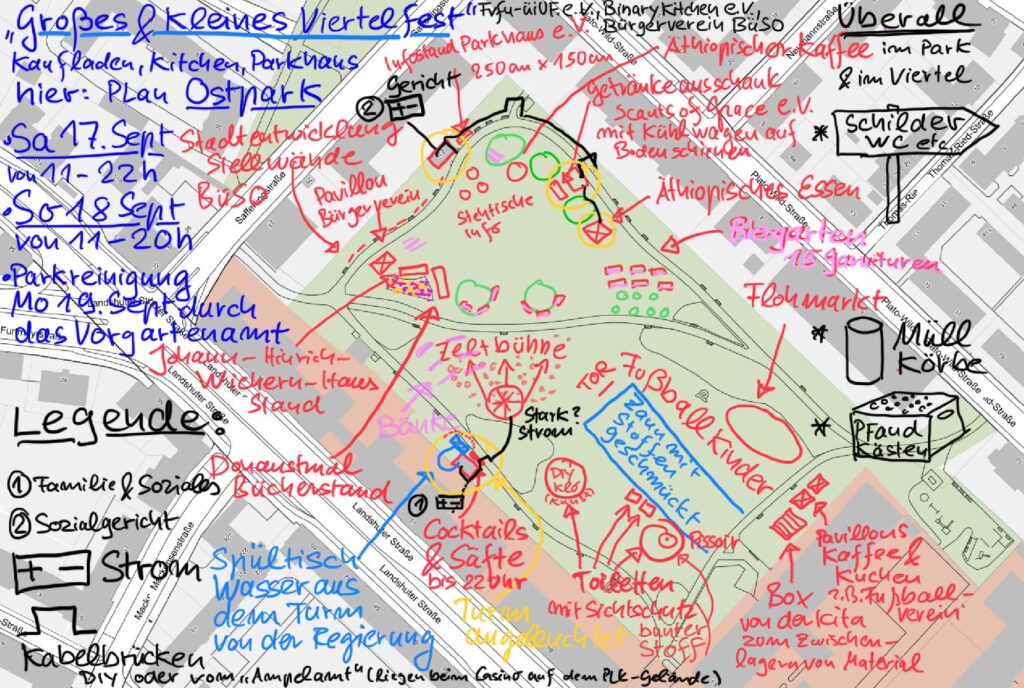 „Großes & kleines Viertelfest"
Kaufladen, Kitchen, Parkhaus
hier: Plan Ostpark
• Sa 17. Sept
von 11-22h
• So 18 Sept
von 11-20h
• Parkreinigung
Mo 19. Sept durch
das Vorgartenamt
e.V., Binary Kitchen e.V.
Bürgerverein BüSo
Infostand Parkhaus e.V.
250cm x 150cm
Gericht
②
Äthiopischer Kaffee
Getränkeausschank
Scauts of Grace e.V.
mit Kühlwagen auf
Bodenschienen
Äthiopisches Essen
Überall
im Park
& im Viertel
* Schilder
WC etc.
* Müll
Körbe
* Pfand
Kästen
Stadtentwicklung
Stellwände
BüSo
Pavillon
Bürgerverein
Stehtische
Info
Biergarten
15 Garnituren
Flohmarkt
Johann-Hinrich-
Wichern-Haus
Stand
Zeltbühne
Bänke
Stark?
Strom
TOR
Fußball Kinder
Zaun mit
Stoffen
geschmückt
Donaustrudl
Bücherstand
①
Cocktails
& Säfte
bis 22 Uhr
Spültisch
Wasser aus
dem Turm
von der Regierung
Turm
angeleuchtet
DIY
Klo
Toiletten
mit Sichtschutz
bunter
Stoff
Pissoir
Pavillons
Kaffee &
Kuchen
z.B. Fußball-
verein
Box
von der Kita
zum Zwischen-
lagern von Material
Legende:
① Familie & Soziales
② Sozialgericht
+ - Strom
Kabelbrücken
DIY oder vom „Ampelamt" (liegen beim Casino auf dem PLK-Gelände)
Safferlingstraße
Plato-Wild-Straße
Plato-Wild-Straße
Thomas-Ried-Straße
Landshuter Straße
Landshuter Straße
Landshuter Straße
Landshuter Straße